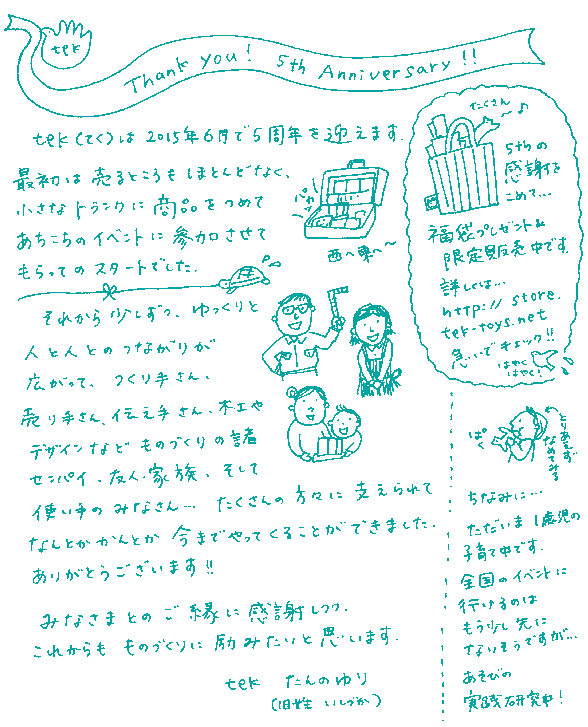 tek
Thank you! 5th Anniversary!!
tek(てく)は 2015年6月で5周年を迎えます.
最初は売るところもほとんどなく、
小さなトランクに商品をつめて
あちこちのイベントに参加させて
もらってのスタートでした.
パカッ
西へ東へ〜
それから少しずつ、ゆっくりと
人と人とのつながりが
広がって、つくり手さん、
売り手さん、伝え手さん、木工や
デザインなどものづくりの諸
センパイ、友人・家族、そして
使い手のみなさん… たくさんの方々に支えられて
なんとかかんとか今までやってくることができました.
ありがとうございます!!
みなさまとのご縁に感謝しつつ、
これからもものづくりに励みたいと思います.
tek たんのゆり
(旧姓 いしづか)
たくさん
〜♪
5thの
感謝を
こめて…
福袋プレゼント&
限定販売中です.
詳しくは…
http://store.
tek-toys.net
急いでチェック!!
はやく
はやく!
とりあえず
なめてみる
ぱく
ちなみに…
ただいま1歳児の
子育て中です.
全国のイベントに
行けるのは
もう少し先に
なりそうですが…
あそびの
実践研究中!